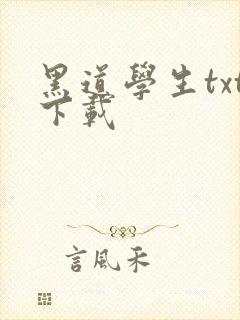 黑道學生txt
下載
言風禾